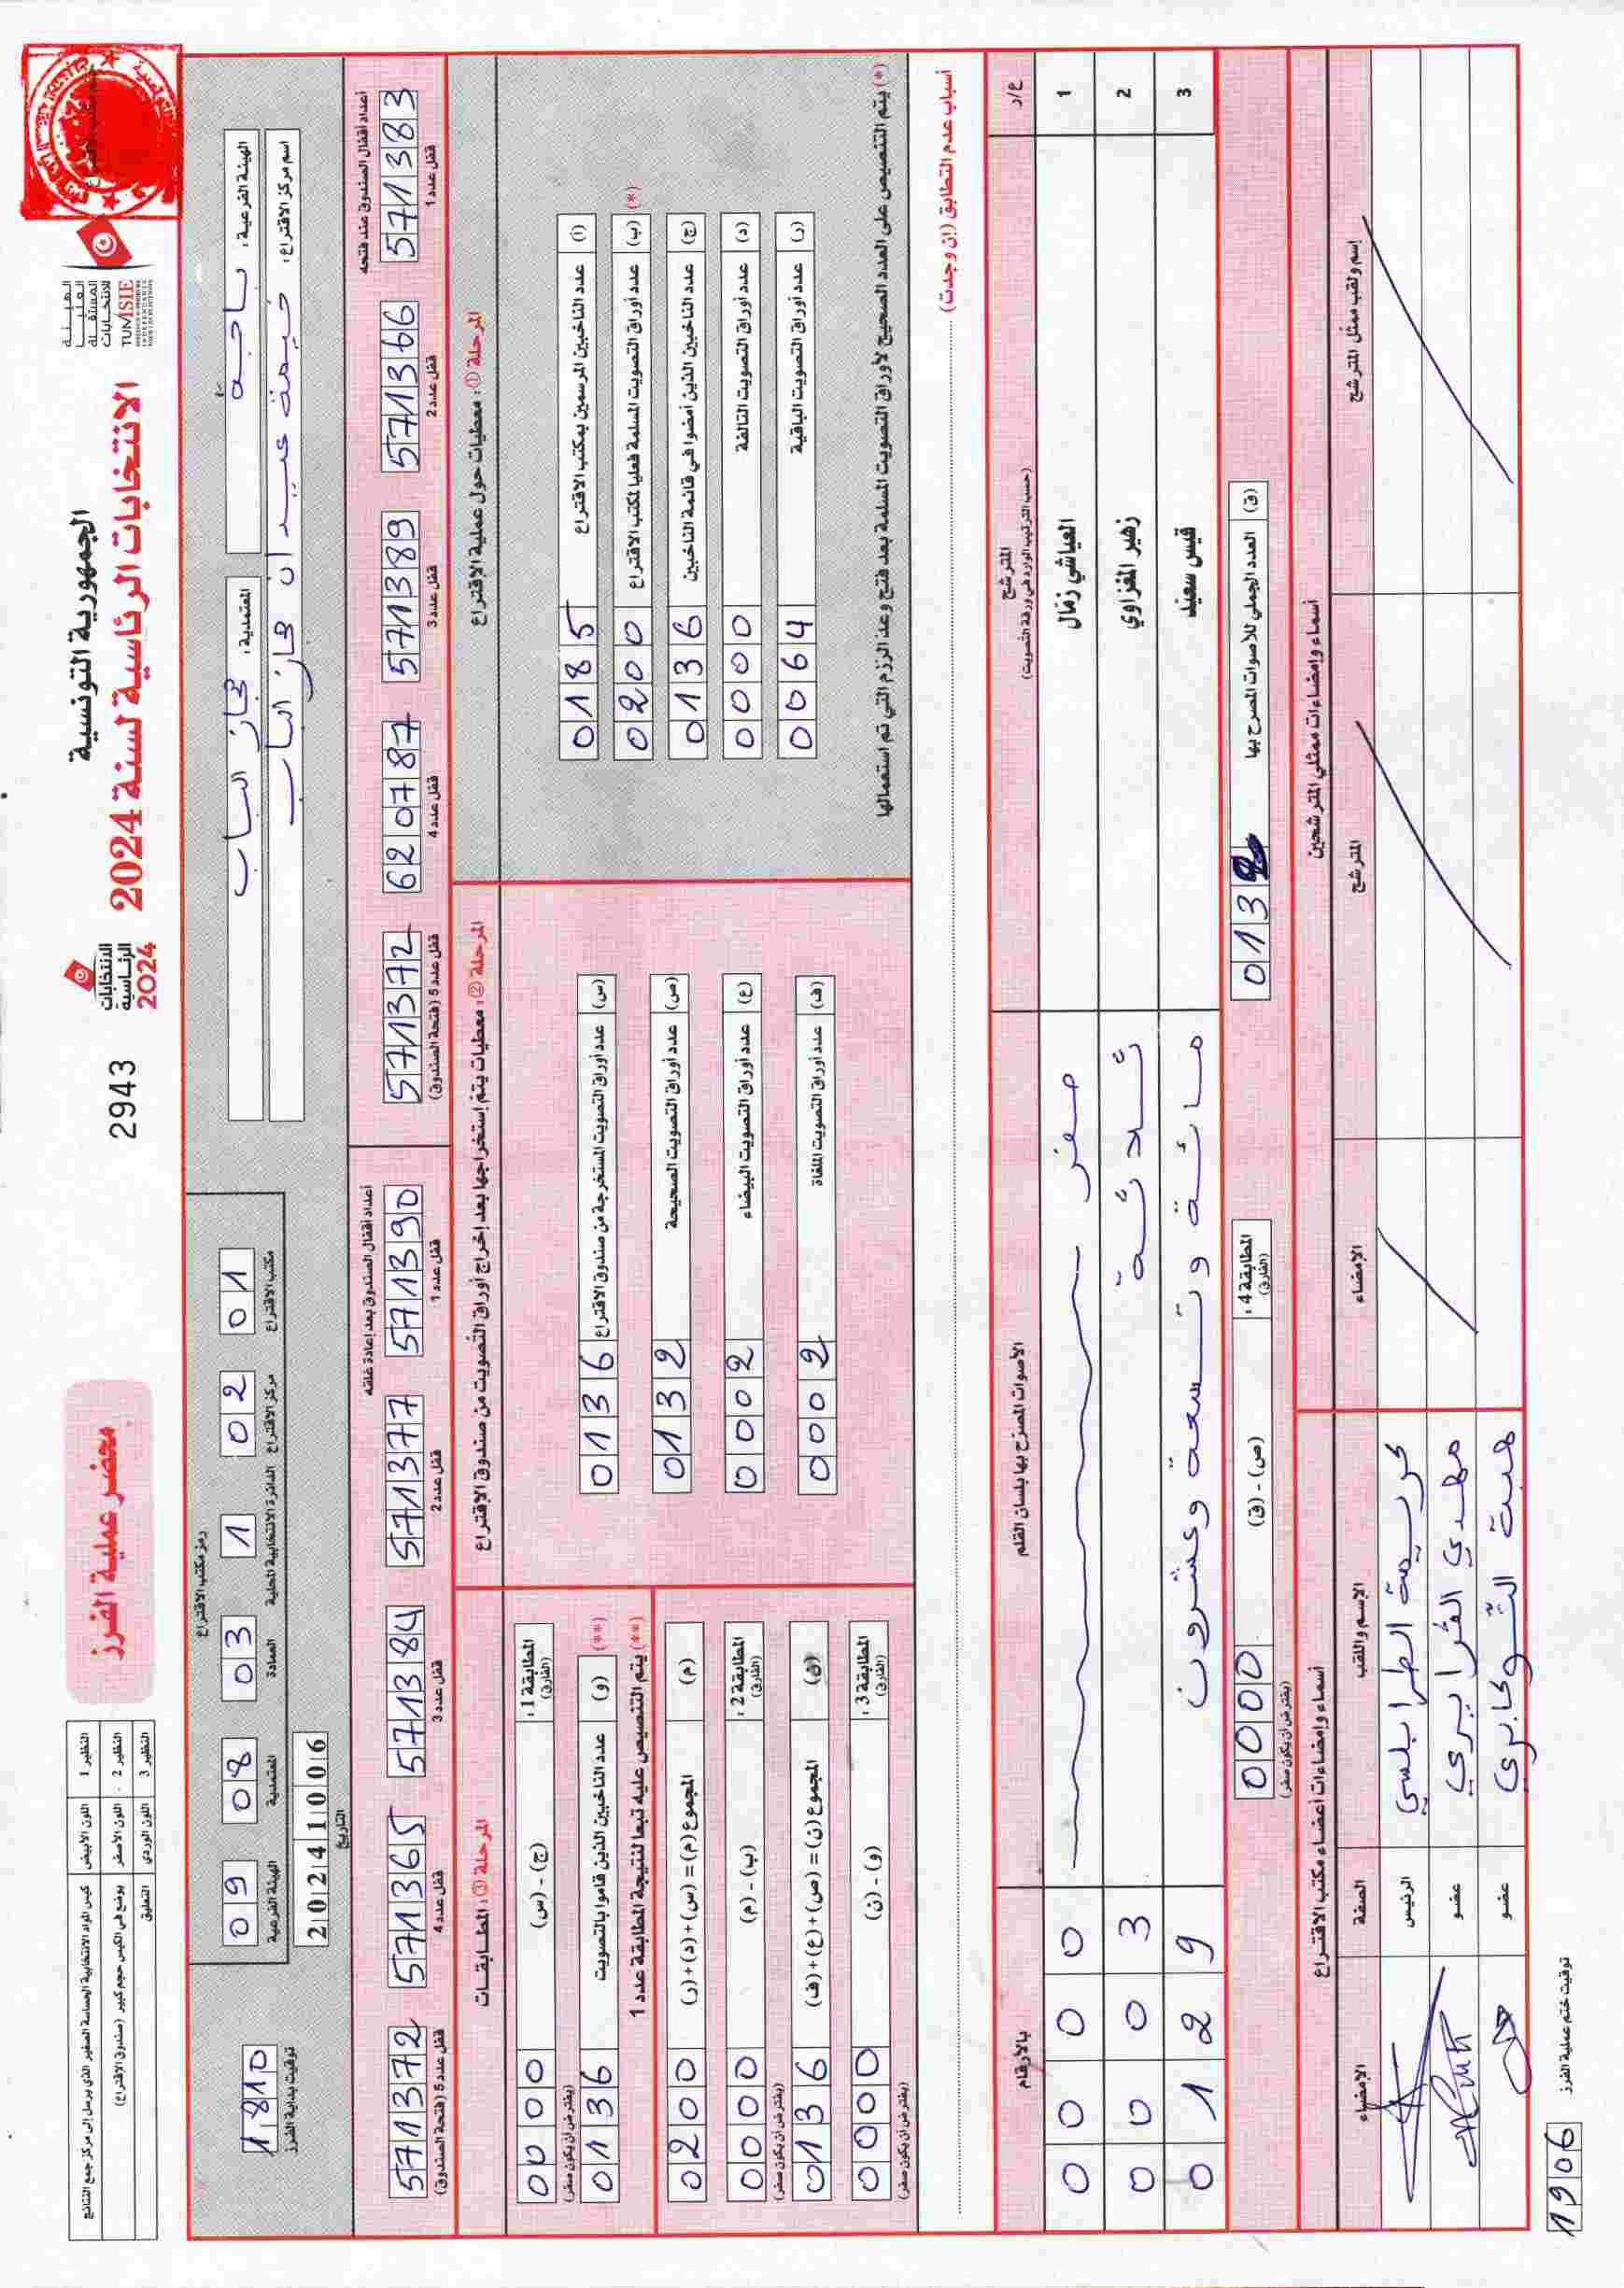 الجمهورية التونسية
الانتخابات الرئاسية لسنة 2024
الهيئة
العليا
المستقلة
للانتخابات
TUNISIE
الانتخابات
الرئاسية
2024
2943
محضر عملية الفرز
النظير 1 اللون الأبيض كيس المواد الانتخابية الحساسة الصغير الذي يرسل إلى مركز جمع النتائج
النظير 2 اللون الأصفر يوضع في الكيس حجم كبير (صندوق الاقتراع)
النظير 3 اللون الوردي التعليق
الهيئة الفرعية: باجة
المعتمدية: مجاز الباب
اسم مركز الاقتراع: خيمة عبيدان مجاز الباب
رمز مكتب الاقتراع
01 02 1 03 08 09
مكتب الاقتراع مركز الاقتراع الدائرة الانتخابية المحلية العمادة المعتمدية الهيئة الفرعية
20241006
التاريخ
1810
توقيت بداية الفرز
أعداد أقفال الصندوق عند فتحه
571383 571366 571389 620787 571372
قفل عدد 1 قفل عدد 2 قفل عدد 3 قفل عدد 4 قفل عدد 5 (فتحة الصندوق)
أعداد أقفال الصندوق بعد إعادة غلقه
571390 571377 571384 571365 571372
قفل عدد 1 قفل عدد 2 قفل عدد 3 قفل عدد 4 قفل عدد 5 (فتحة الصندوق)
المرحلة ①: معطيات حول عملية الاقتراع
(أ) عدد الناخبين المرسمين بمكتب الاقتراع 0185
(*) (ب) عدد أوراق التصويت المسلمة فعليا لمكتب الاقتراع 0200
(ج) عدد الناخبين الذين أمضوا في قائمة الناخبين 0136
(د) عدد أوراق التصويت التالفة 0000
(ر) عدد أوراق التصويت الباقية 0064
(*) يتم التنصيص على العدد الصحيح لأوراق التصويت المسلمة بعد فتح وعد الرزم التي تم استعمالها
المرحلة ②: معطيات يتم إستخراجها بعد إخراج أوراق التصويت من صندوق الاقتراع
(س) عدد أوراق التصويت المستخرجة من صندوق الاقتراع 0136
(ص) عدد أوراق التصويت الصحيحة 0132
(ع) عدد أوراق التصويت البيضاء 0002
(ف) عدد أوراق التصويت الملغاة 0002
المرحلة ③: المطابقات
المطابقة 1: (الفارق) (ج) - (س) 0000
(يفترض أن يكون صفر)
(**) (و) عدد الناخبين الذين قاموا بالتصويت 0136
(**) يتم التنصيص عليه تبعا لنتيجة المطابقة عدد 1
(م) المجموع (م) = (س)+(د)+(ر) 0200
المطابقة 2: (الفارق) (ب) - (م) 0000
(يفترض أن يكون صفر)
(ن) المجموع (ن) = (ص)+(ع)+(ف) 0136
المطابقة 3: (الفارق) (و) - (ن) 0000
(يفترض أن يكون صفر)
أسباب عدم التطابق (إن وجدت)
ع/د المترشح (حسب الترتيب الوارد في ورقة التصويت) الأصوات المصرح بها بلسان القلم بالأرقام
1 العياشي زمّال صفر 0000
2 زهير المغزاوي ثلاثة 0003
3 قيس سعيّد مائة وتسعة وعشرون 0129
(ق) العدد الجملي للأصوات المصرح بها 0132
المطابقة 4: (الفارق) (ص) - (ق) 0000
(يفترض أن يكون صفر)
أسماء وإمضاءات ممثلي المترشحين
إسم ولقب ممثل المترشح المترشح الإمضاء
أسماء وإمضاءات أعضاء مكتب الاقتراع
الإسم واللقب الصفة الإمضاء
كريمة الطرابلسي الرئيس
مهدي الفرايري عضو
هبة عضو
توقيت ختم عملية الفرز
1906